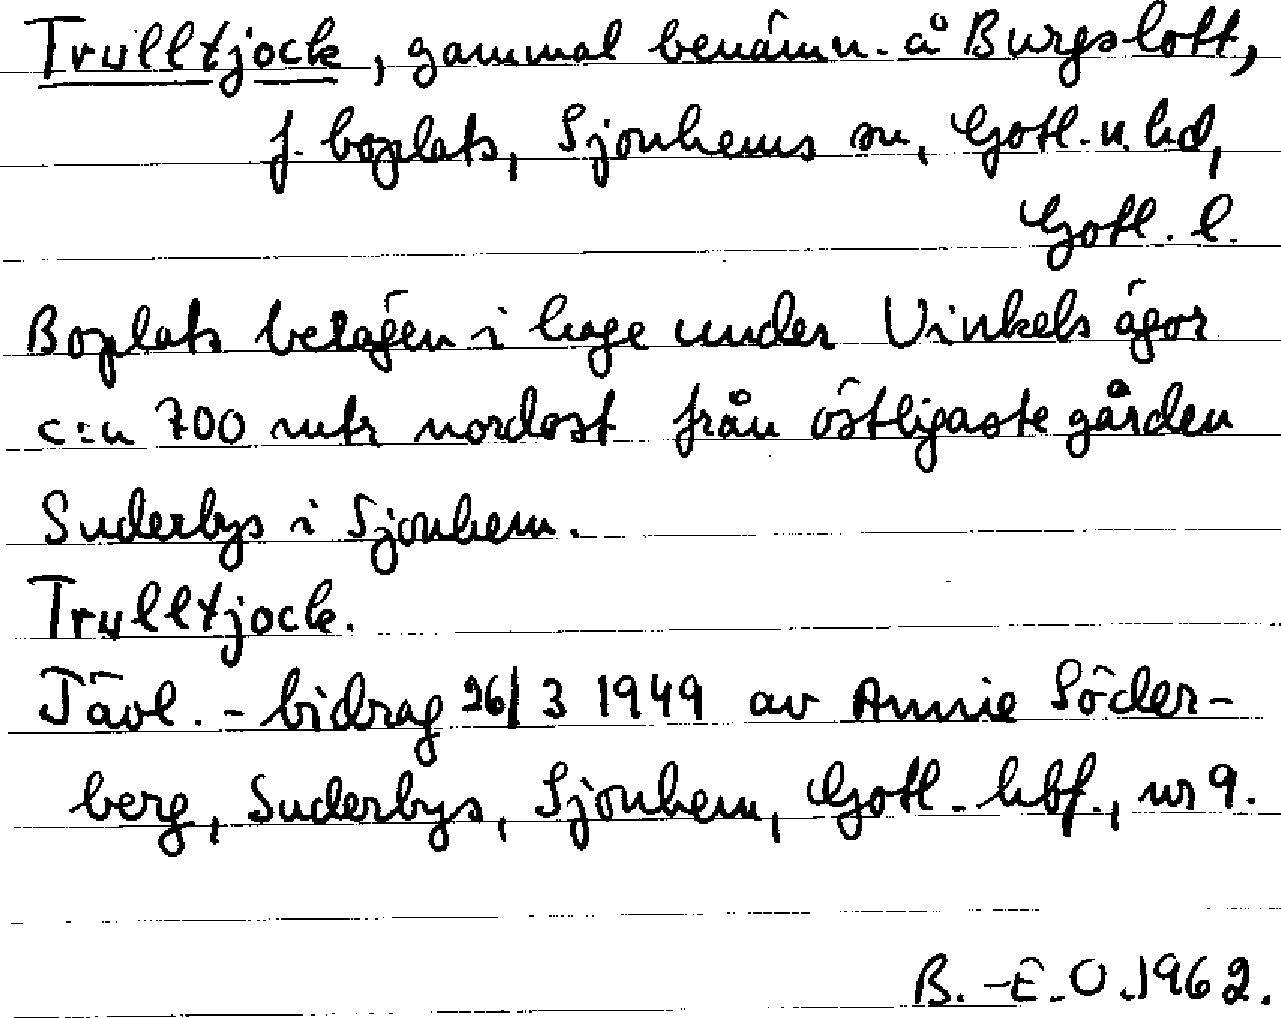 Trulltjock, gammal benämn. å Burgslott,
f. boplats, Sjonhems sn, Gotl. n. hd,
Gotl. l.
Boplats belägen i hage under Vinkels ägor
c:a 700 mtr nordost från östligaste gården
Suderbys i Sjonhem.
Trulltjock.
Tävl.-bidrag 26/3 1949 av Annie Söder-
berg, Suderbys, Sjonhem, Gotl. hbf., nr 9.
B.-E.O.1962.